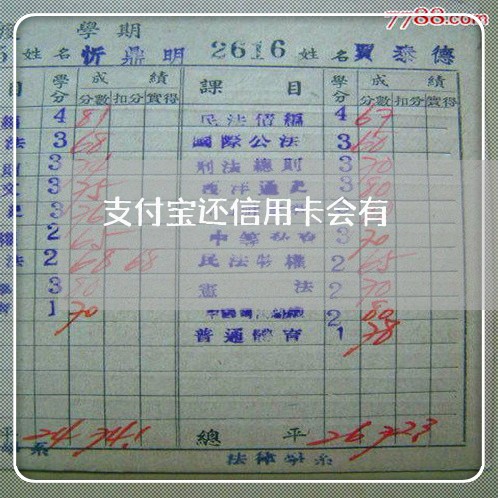 7788.com
學期
5 姓名 忻鼎明 2616 姓名 賈泰德
目 學分 成績 課目 學分 成績
分數 扣分 實得 分數 扣分 實得
4 81 民法債編 4 67
法 3 68 國際公法 3 60
3 刑法總則 3 70
3 75 西洋通史 3 80
支付宝还信用卡会有
2 65 3 70
法 2 68 68 民法物權 2 65
3 80 憲法 2 70
1 70 2 80
普通體育 1 78
平 24 74.1 總平 26 72.3
系 法律學系